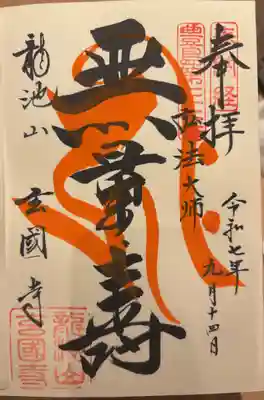 奉拝
令和七年
九月十四日
弘法大師
無量壽
龍池山
玄國寺
龍池山
玄國寺